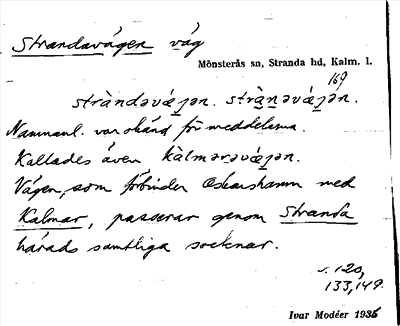 Strandavägen väg
Mönsterås sn, Stranda hd, Kalm. l.
169
stràndəvǽjən. stràṉəvǽjən.
Namnanl. var okänd för meddelarna.
Kallades även kàlmərəvǽjən.
Vägen, som förbinder Oskarshamn med
Kalmar, passerar genom Stranda
härads samtliga socknar.
s. 120,
133, 149.
Ivar Modéer 1936